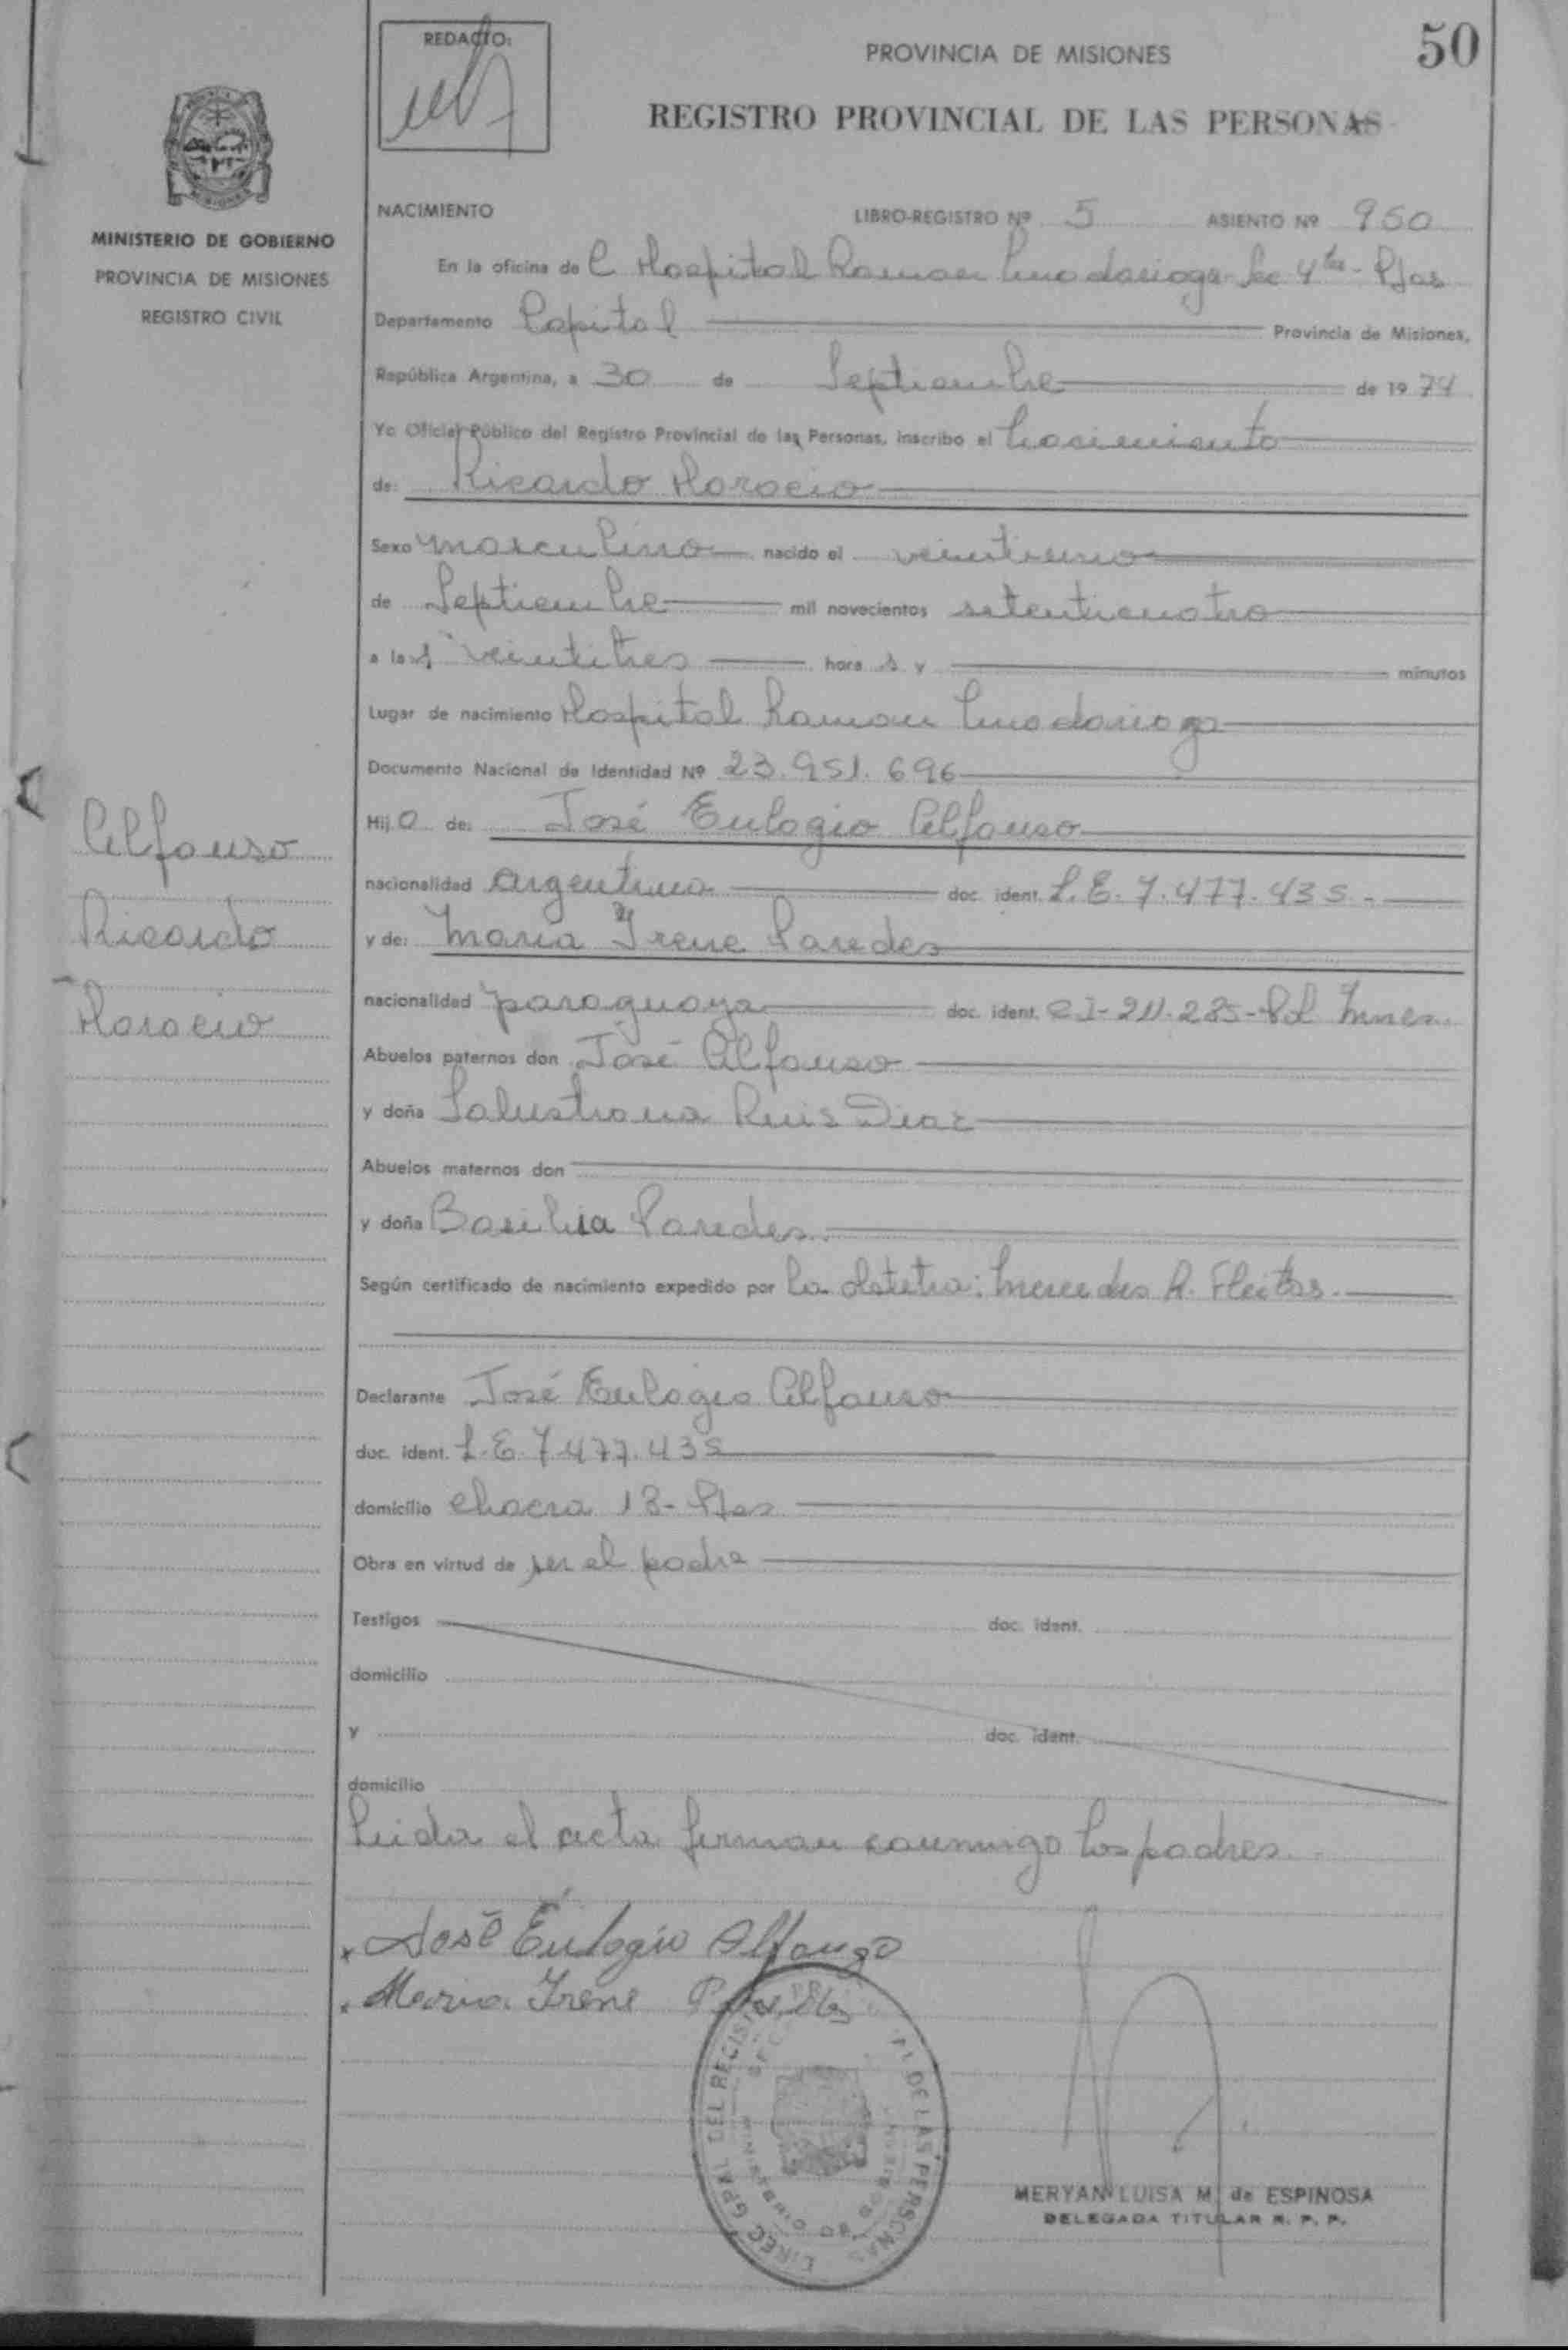 50
REDACTO:
PROVINCIA DE MISIONES
REGISTRO PROVINCIAL DE LAS PERSONAS
MINISTERIO DE GOBIERNO
PROVINCIA DE MISIONES
REGISTRO CIVIL
NACIMIENTO LIBRO-REGISTRO Nº 5 ASIENTO Nº 950
En la oficina de Hospital Ramon Madariaga Sec 4ta - Pdas
Departamento Capital Provincia de Misiones,
República Argentina, a 30 de Septiembre de 19 74
Yo Oficial Público del Registro Provincial de las Personas, inscribo el Nacimiento
de: Ricardo Horacio
Sexo masculino nacido el veintiuno
de Septiembre mil novecientos setenticuatro
a las veintitres hora s y minutos
Lugar de nacimiento Hospital Ramon Madariaga
Documento Nacional de Identidad Nº 23.951.696
Hij o de: José Eulogio Alfonso
nacionalidad argentina doc. ident. L.E. 7.477.435.-
y de: Maria Irene Paredes
nacionalidad paraguaya doc. ident. CI-211.285-Pol Mnes.
Abuelos paternos don José Alfonso
y doña Salustiana Ruis Diaz
Abuelos maternos don
y doña Basilia Paredes.
Según certificado de nacimiento expedido por la obstetra: Mercedes R. Fleitas.
Declarante José Eulogio Alfonso
doc. ident. L.E. 7.477.435
domicilio chacra 18- Pdas
Obra en virtud de ser el padre
Testigos doc. ident.
domicilio
y doc. ident.
domicilio
Leida el acta firman conmigo los padres.
Alfonso
Ricardo
Horacio
x José Eulogio Alfonzo
x Maria Irene Paredes
DIREC GRAL DEL REGIST DE LAS PERSONAS
MINISTERIO DE GOBIERNO
MERYAN LUISA M. de ESPINOSA
DELEGADA TITULAR R. P. P.